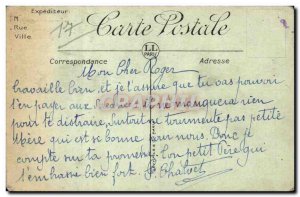 Expéditeur
M
Rue
Ville
17
Carte Postale
LL
PARIS
Correspondance
Adresse
Mon Cher Roger
travaille bien et je t'assure que tu vas pouvoir
t'en payer aux
manquera rien
pour te distraire, surtout ne tourmente pas petite
Mère qui est se bonne pour nous. Donc je
compte sur ta promesse. Ton petit Père qui
t'embrasse bien fort.